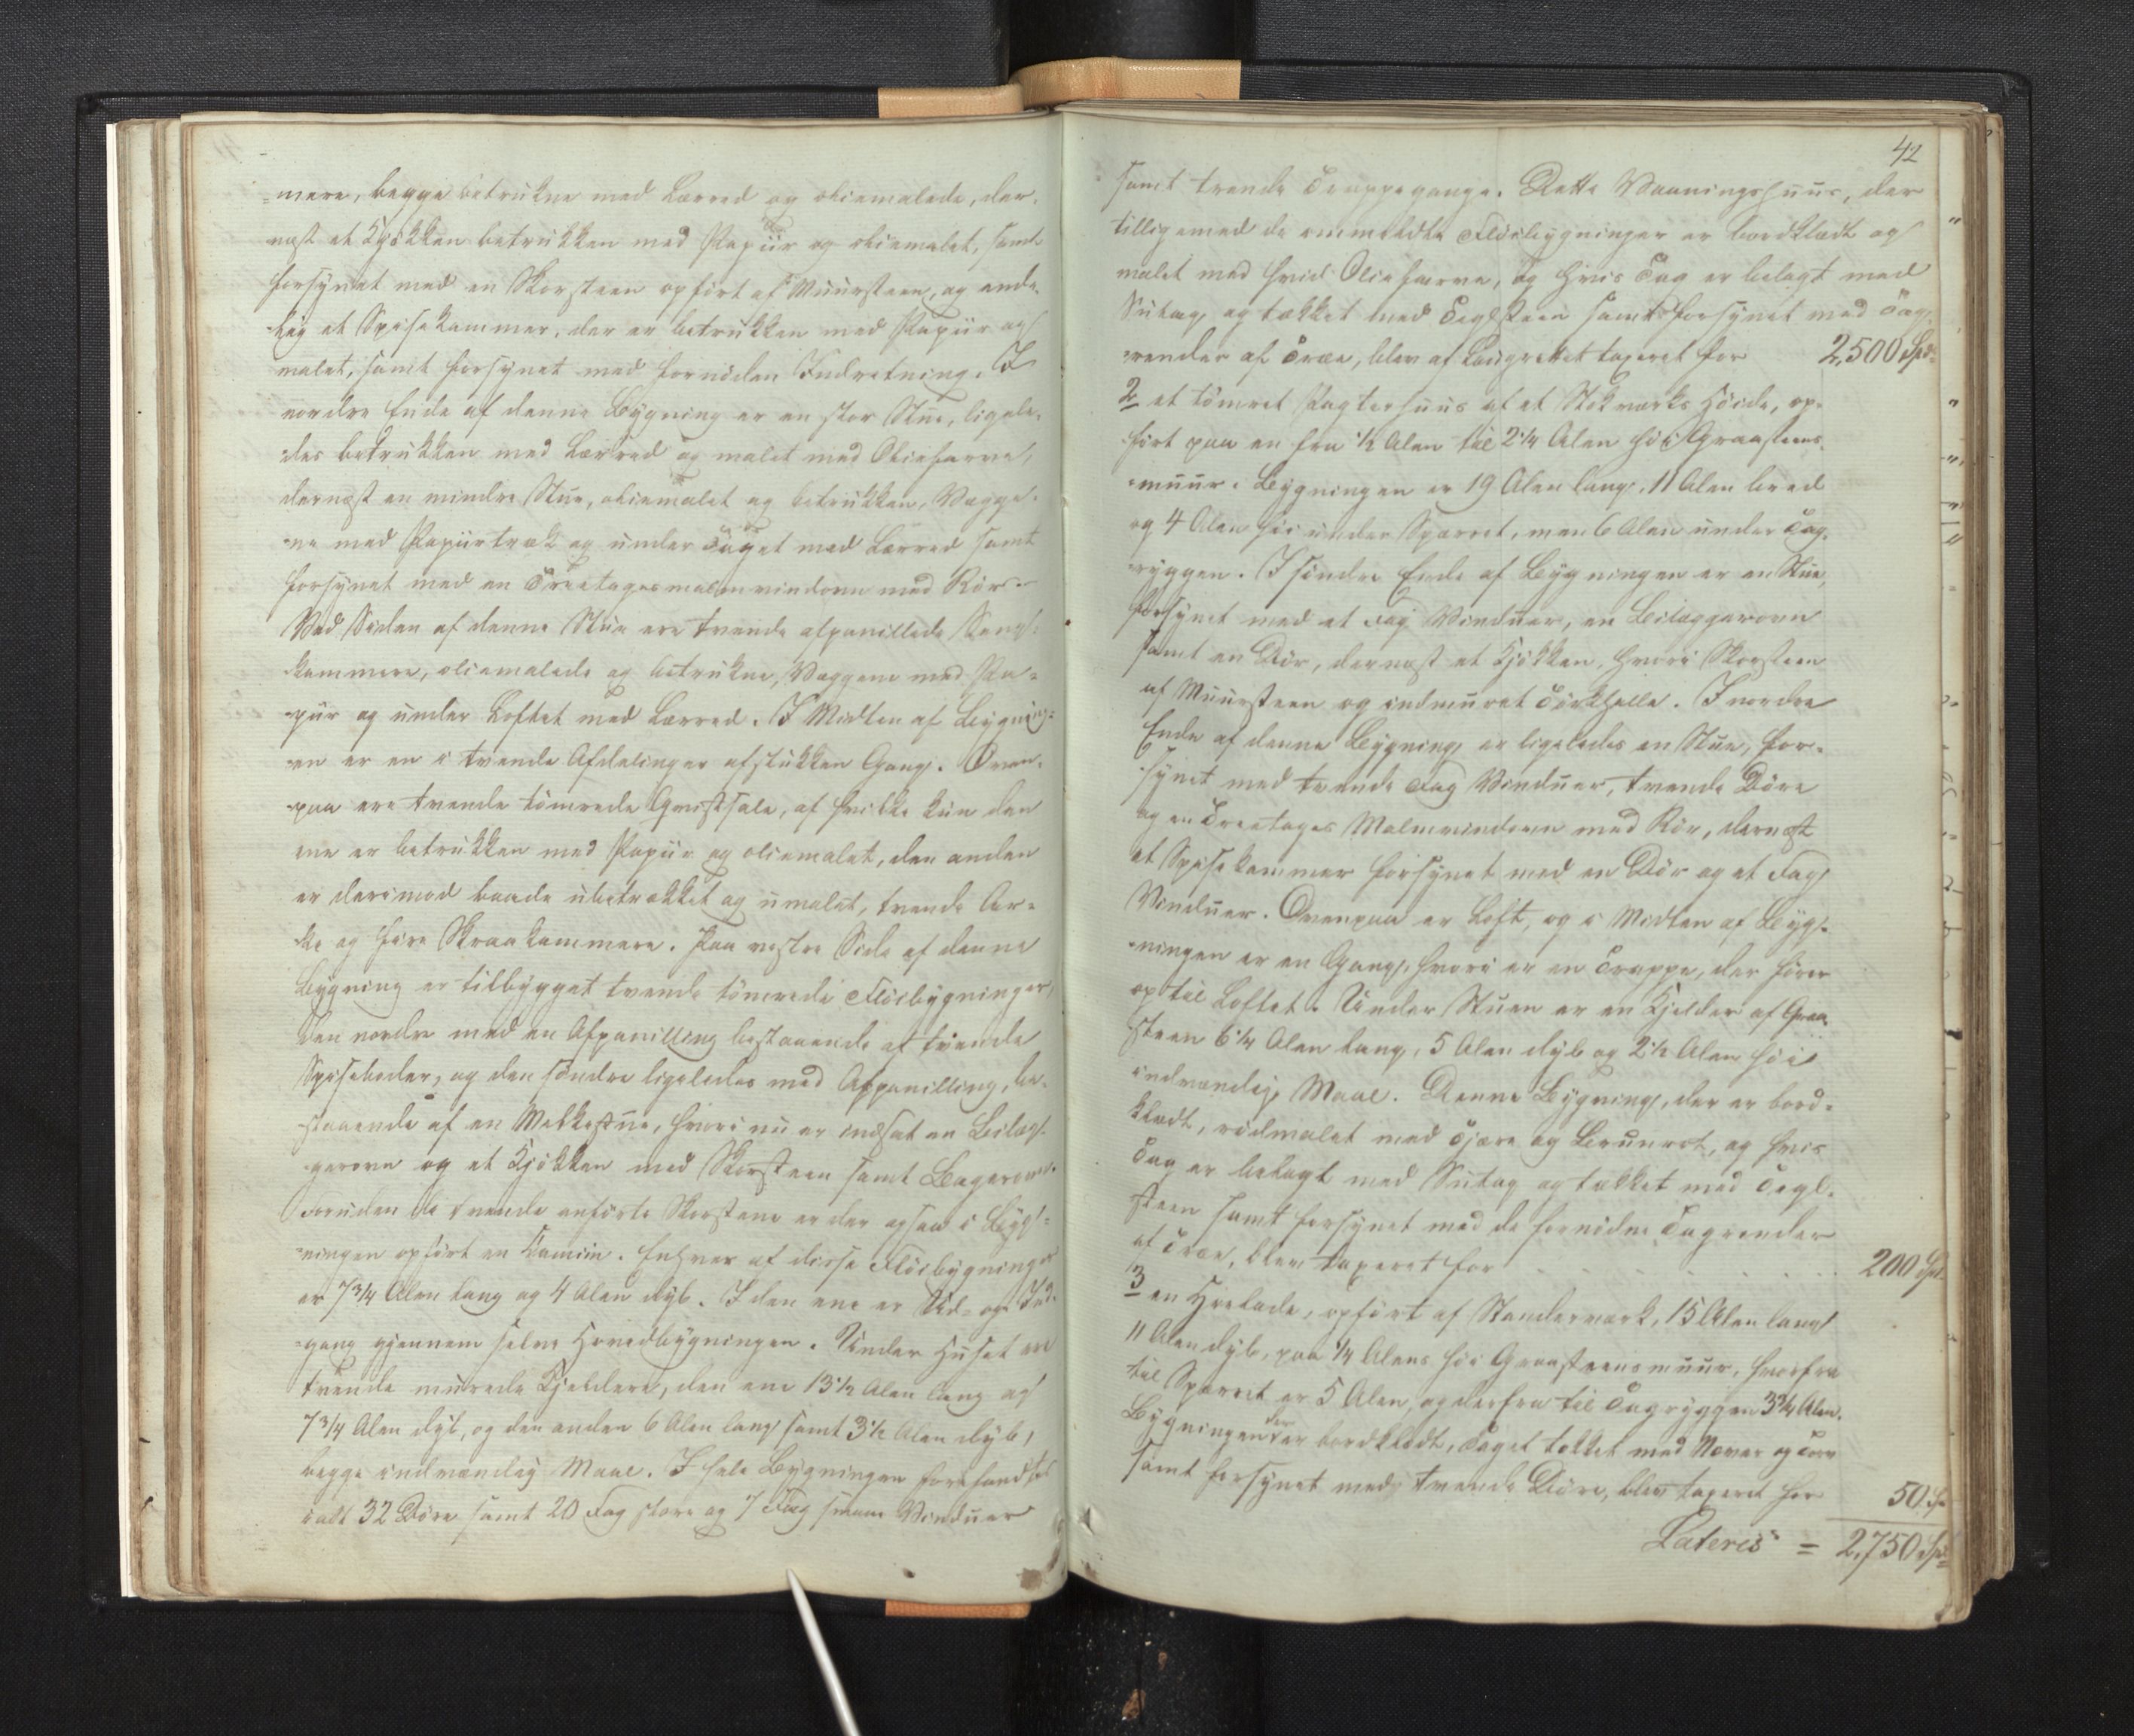 =mere, begge betrukne med Lærred og oliemalede, der-
næst et Kjøkken betrukken med Papiir og oliemalet, samt
forsynet med en Skorsteen opført af Muursteen, og ende-
lig et Spisekammer, der er betrukken med Papiir og
malet, samt forsynet med fornøden Indretning. I
nordre Ende af denne Bygning er en stor Stue, ligele-
des betrukken med Lærred og malet med Oliefarve,
dernæst en mindre Stue, oliemalet og betrukken, Vægge-
ne med Papiirtræk og under Taget med Lærred samt
forsynet med en Treetages malmvindovn med Rør.
Ved Siden af denne Stue ere tvende afpanillede Senge-
kammere, oliemalede og betrukne, Væggene med Pa-
piir og under Loftet med Lærred. I Midten af Bygning=
en er en i tvende Afdelinger afstukken Gang. Oven-
paa ere tvende tømrede Qvistsale, af hvilke kun den
ene er betrukken med Papiir og oliemalet, den anden
er derimod baade ubetrækket og umalet, tvende Ar-
ke og fire Skraakammere. Paa vestre Side af denne
Bygning er tilbygget tvende tømrede Fløibygninger,
den nordre med en Afpanilling bestaaende af tvende
Spiseboder, og den søndre ligeledes med Afpanilling, be-
staaende af en Melkestue, hvori nu er indsat en Bilæg-
gerovn og et Kjøkken med Skorsteen samt Bagerovn.
Foruden de tvende anførte Skorstene er der ogsaa i Byg=
ningen opført en Kamin. Enhver af disse Fløibygninger
er 7¾ Alen lang og 4 Alen dyb. I den ene er Ud- og Ind-
gang gjennem selve Hovedbygningen. Under Huset ere
tvende murede Kjeldere, den ene 13½ Alen lang og
7¾ Alen dyb, og den anden 6 Alen lang samt 3½ Alen dyb,
begge indvendig Maal. I hele Bygningen forefandtes
ialt 32 Døre samt 20 Fag store og 7 Fag smaae Vinduer
42
samt trende Trappegange. Dette Vaaningshuus, der
tilligemed de ommeldte Fløibygninger er bordklædt og
malet med hvid Oliefarve, og hvis Tag er belagt med
Sutag og tækket med Teglsteen samt forsynet med Tag-
render af Træe, blev af Lavgrettet taxeret for 2,500 Spd
2 et tømret Pagterhuus af et Stokværks Høide, op-
ført paa en fra ½ Alen til 2¼ Alen høi Graasteens-
muur. Bygningen er 19 Alen lang, 11 Alen bred
og 4 Alen høi under Sparret, men 6 Alen under Tag-
ryggen. I søndre Ende af Bygningen er en Stue,
forsynet med et Fag Vinduer, en Bilæggerovn
samt en Dør, dernæst et Kjøkken, hvori Skorsteen
af Muursteen og indmuret Tørkhelle. I nordre
Ende af denne Bygning er ligeledes en Stue, for-
synet med tvende Fag Vinduer, tvende Døre
og en Treetages Malmvindovn med Rør, dernæst
et Spisekammer forsynet med en Dør og et Fag
Vinduer. Ovenpaa er Loft, og i Midten af Byg-
ningen er en Gang, hvori er en Trappe, der fører
op til Loftet. Under Stuen er en Kjelder af Graa-
steen 6¼ Alen lang, 5 Alen dyb og 2½ Alen høi
indvendig Maal. Denne Bygning, der er bord-
klædt, rødmalet med Tjære og Brunrot, og hvis
Tag er belagt med Sutag og tækket med Tegl-
steen samt forsynet med de fornødne Tagrender
af Træe, blev taxeret for 200 Spd
3 en Høelade, opført af Standerværk, 15 Alen lang
11 Alen dyb, paa ¼ Alens høi Graasteensmuur, hvorfra
til Sparret er 5 Alen, og derfra til Tagryggen 3¾ Alen.
Bygningen der er bordklædt, Taget tækket med Næver og Torv
samt forsynet med tvende Døre, blev taxeret for 50 Sp
Lateris = 2,750 Spd